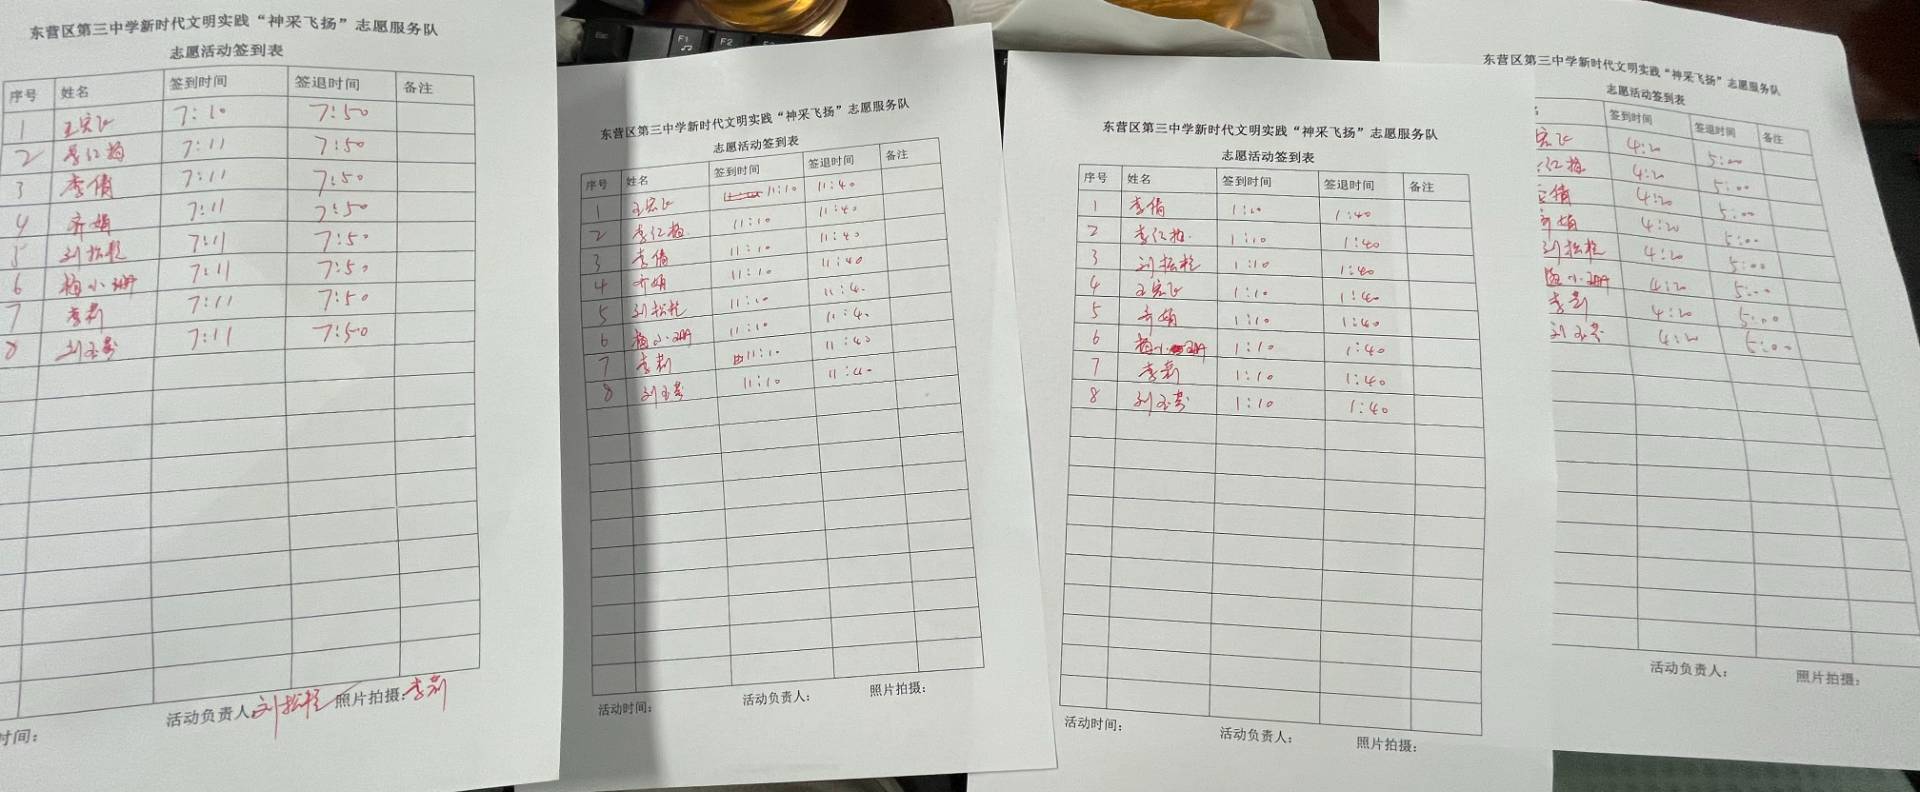 东营区第三中学新时代文明实践“神采飞扬”志愿服务队
志愿活动签到表
序号 姓名 签到时间 签退时间 备注
1 王宏飞 7:10 7:50
2 李红梅 7:11 7:50
3 李倩 7:11 7:50
4 齐娟 7:11 7:50
5 刘松程 7:11 7:50
6 梅小珊 7:11 7:50
7 李莉 7:11 7:50
8 刘玉 7:11 7:50
活动负责人 刘松程 照片拍摄:李莉
时间:
东营区第三中学新时代文明实践“神采飞扬”志愿服务队
志愿活动签到表
序号 姓名 签到时间 签退时间 备注
1 王宏飞 11:10 11:40
2 李红梅 11:10 11:40
3 李倩 11:10 11:40
4 齐娟 11:10 11:40
5 刘松程 11:10 11:40
6 梅小珊 11:10 11:40
7 李莉 11:10 11:40
8 刘玉 11:10 11:40
活动时间: 活动负责人: 照片拍摄:
东营区第三中学新时代文明实践“神采飞扬”志愿服务队
志愿活动签到表
序号 姓名 签到时间 签退时间 备注
1 李倩 1:10 1:40
2 李红梅 1:10 1:40
3 刘松程 1:10 1:40
4 王宏飞 1:10 1:40
5 齐娟 1:10 1:40
6 梅小珊 1:10 1:40
7 李莉 1:10 1:40
8 刘玉 1:10 1:40
活动时间: 活动负责人: 照片拍摄:
东营区第三中学新时代文明实践“神采飞扬”志愿服务队
志愿活动签到表
签到时间 签退时间 备注
宏飞 4:20 5:00
红梅 4:20 5:00
倩 4:20 5:00
齐娟 4:20 5:00
刘松程 4:20 5:00
梅小珊 4:20 5:00
李莉 4:20 5:00
刘玉 4:20 5:00
活动负责人: 照片拍摄:
Esc F1 F2